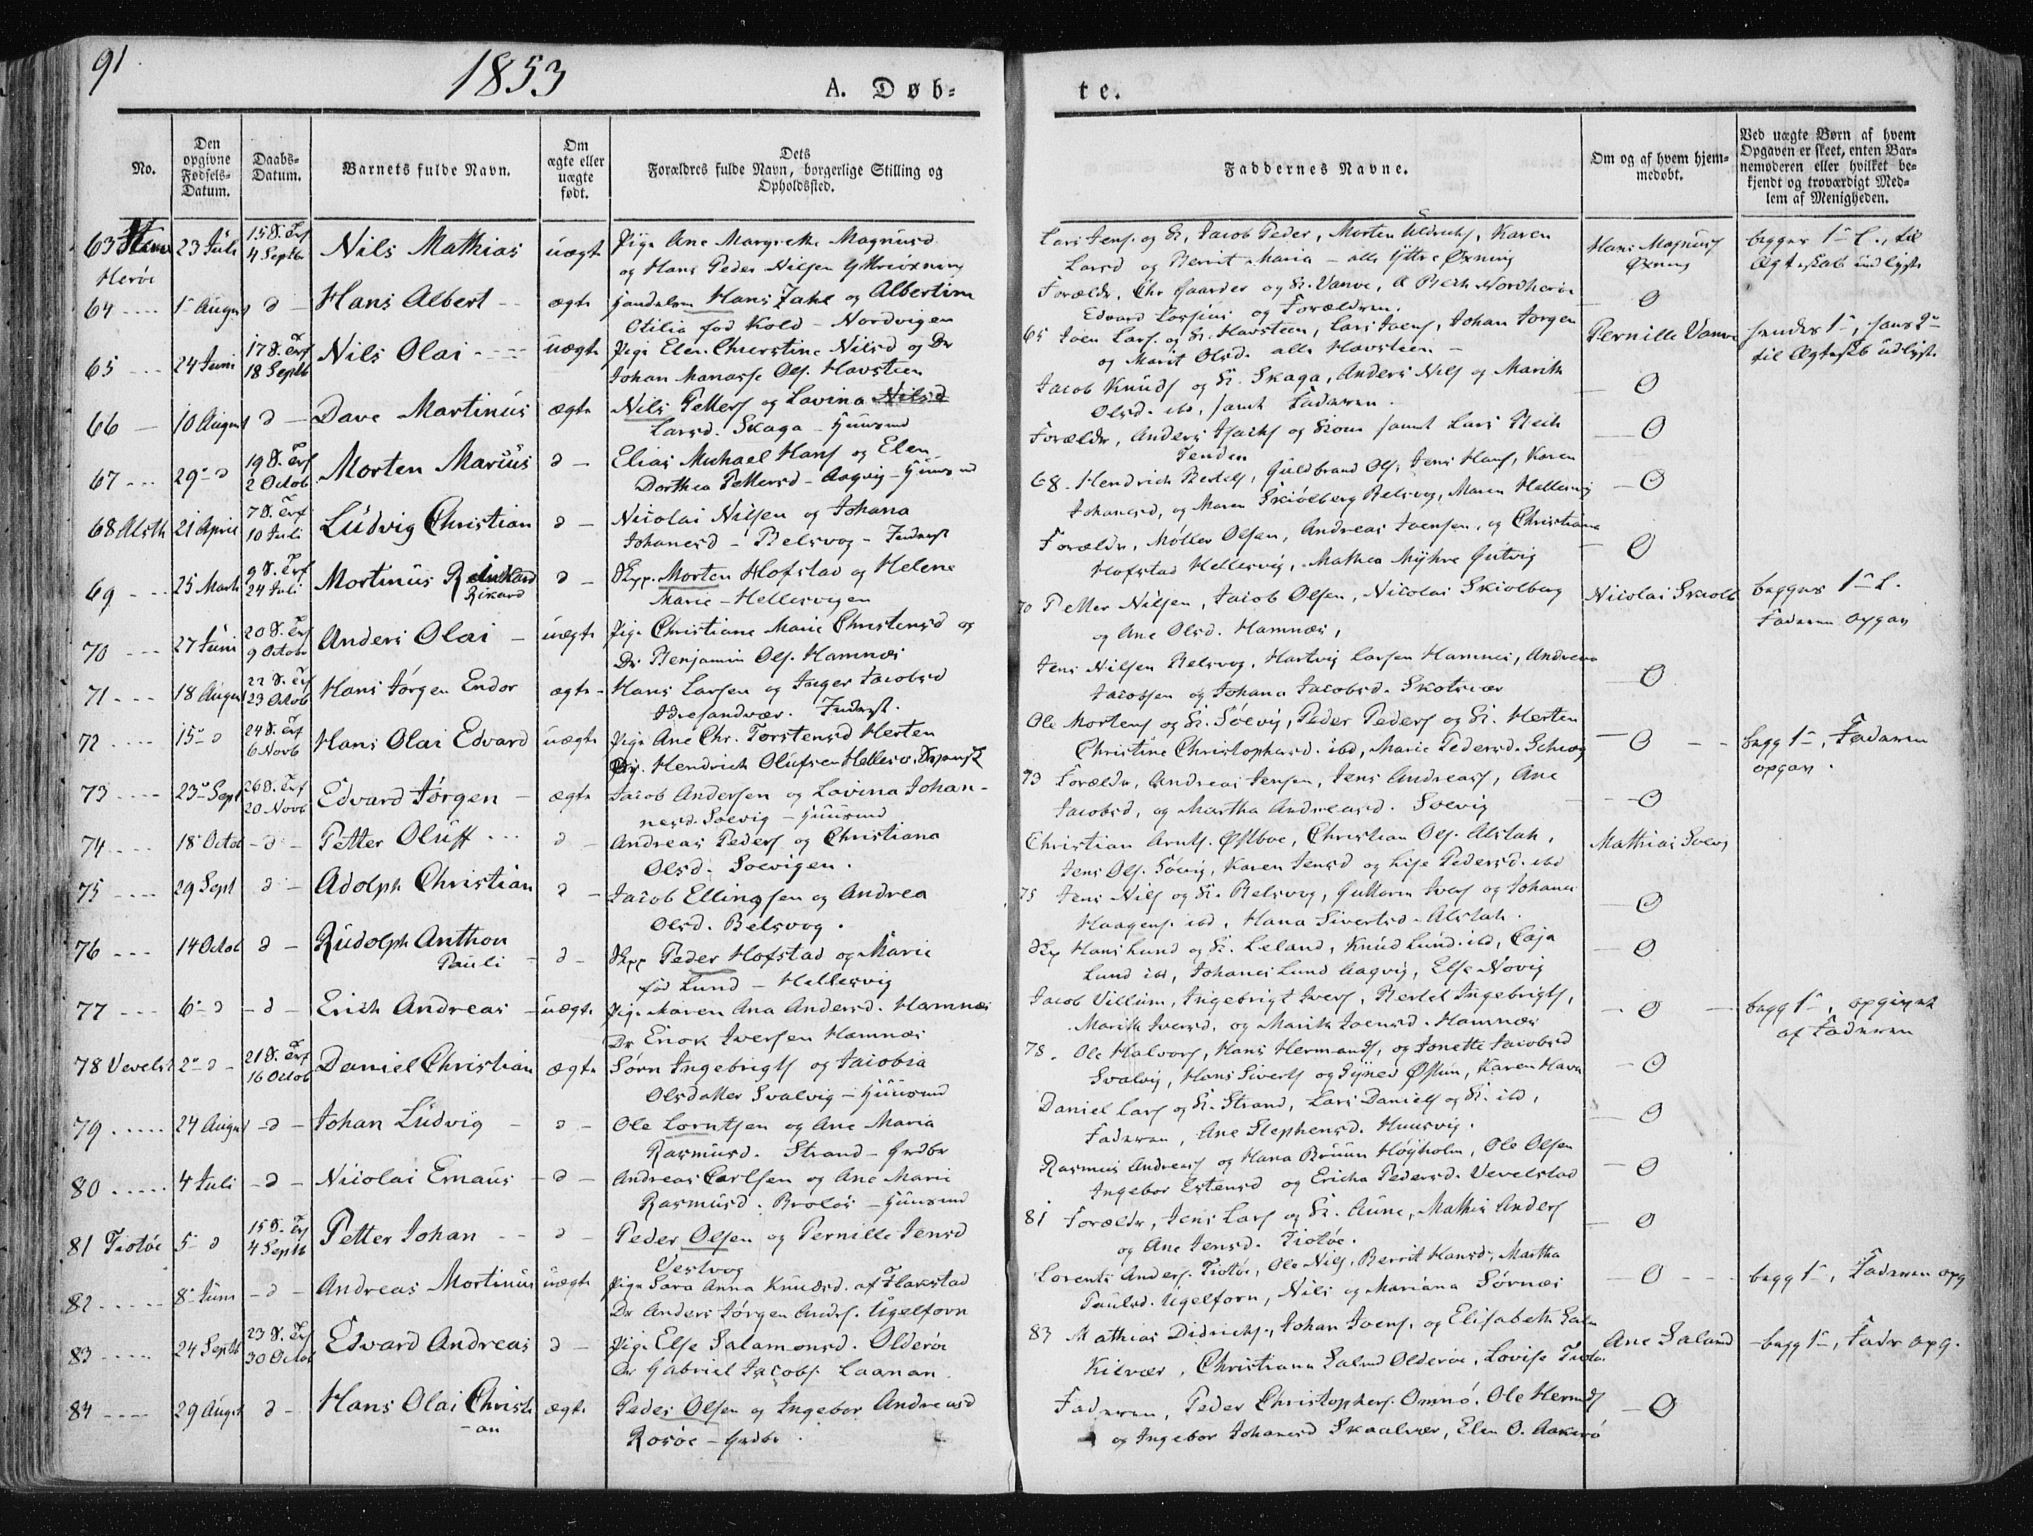 91
1853
A. Døb-
te.
No.
Den opgivne Fødsels-Datum.
Daabs-Datum.
Barnets fulde Navn.
Om ægte eller uægte født.
Dets Forældres fulde Navn, borgerlige Stilling og Opholdssted.
Faddernes Navne.
Om og af hvem hjem-medøbt.
Ved uægte Børn af hvem Opgaven er skeet, enten Bar-nemoderen eller hvilket be-kjendt og troværdigt Med-lem af Menigheden.
63 Herøe 23 Juli 15 S. Trf 4 Septb Nils Mathias uægte Pige Ane Margrethe Magnusd.
og Hans Peder Nilsen Yttreøxning
Lars Jens. og K, Jacob Peder, Morten, Karen
Larsd og Berrit Maria - alle Yttre Øxning
Hans Magnus Øxning
begges 1ste L., til
Ægteskab indlyst
64 1ste August d Hans Albert ægte Handelsm Hans Zahl og Albertine
Otilia fød Kold - Nordvigen
Forældr, Chr Gaarder og K. Vanve,
Edvard og Forældren.
0
65 24 Juni 17 S. Trf 18 Septb Nils Olai uægte Pige Elen Chierstine Nilsd og Dr
Johan Manasse Ols. Havsteen
65 Joen Lars. og K. Havsteen, Lars Joens, Johan Jørgen
og Marit Olsd. alle Havsteen
Pernille Vanve
hendes 1ste, hans 2de
til Ægteskb udlyst
66 10 August d Dave Martinus ægte Nils Petters og Lovina Nilsd
Larsd. Skaga - Huusmd
Jacob Knuds og K. Skaga, Anders Nils og Marith
Olsd. ibd, samt Faderen.
0
67 29 d 19 S. Trf 2 Octob Morten Marius d Elias Michael Hans og Elen
Dorthea Pettersd - Aagvig - Huusmd
Forældr, Anders Isachs og Kone samt Lars
Tenden
0
68 Alsth 21 April 7 S. Trf 10 Juli Ludvig Christian d Nicolai Nilsen og Johana
Johanesd - Belsvog - Inderst
68. Hendrich Bertels, Guldbrand Ols, Jens Hans, Karen
Johanesd, og Maren Skiølberg Belsvog, Maren Hellesvig
0
69 25 Marts 9 S. Trf 24 Juli Mortinus Reinhard Rikard d Skpp. Morten Hofstad og Helene
Marie - Hellesvigen
Forældr, Møller Olsen, Andreas Joensen, og Christiane
Hofstad Hellesvig, Mathea Myhre
0
70 27 Juni 20 S. Trf 9 Octobr Anders Olai uægte Pige Christiane Marie Christensd og
Dr Benjamin Ols. Hamnæs
70 Petter Nilsen, Jacob Olsen, Nicolai Skiolberg
og Ane Olsd. Hamnæs,
Nicolai Skiolb
begges 1ste L.
Faderen opgav
71 18 August 22 S. Trf 23 Octob Hans Jørgen Endor ægte Hans Larsen og Inger Jacobsd
Inderst.
Jens Nilsen Belsvog, Hartvig Larsen Hamnes, Andreas
Jacobsen og Johana Jacobsd. Skotsvær
0
72 15 d 24 S. Trf 6 Novb Hans Olai Edvard uægte Pige Ane Chr. Torstensd Herten
Hendrich Olufsen Hellesv.
Ole Mortens og K. Sóevig, Peder Peders og K. Herten
Christine Christophersd. ibd, Marie Pedersd.
0
begg 1ste, Faderen
opgav.
73 23 Sept 26 S. Trf 20 Novb Edvard Jørgen ægte Jacob Andersen og Lovina Johan-
nesd. Soevig - Huusmd
73 Forældr, Andreas Jensen, Jens Andreas, Ane
Jacobsd, og Martha Andreasd. Soevig
0
74 18 Octob d Petter Oluff d Andreas Peders og Christiana
Olsd. Soevigen.
Christian Arnts. Østboe, Christian Ols. Alstah,
Jens Ols. Sóevig, Karen Jensd og Lise Pedersd. ibd
Mathias Soevig
75 29 Sept d Adolph Christian d Jacob Ellingsen og Andrea
Olsd. Belsvog.
75 Jens Nils og K. Belsvog, Guttorm Ivers og Johanes
Haagens. ibd, Hana Sivertsd. Alstah.
0
76 14 Octob d Rudolph Anthon Pauli d Skpp Peder Hofstad og Marie
fød Lund - Hellesvig
Skp Hans Lund og K. Leland, Knud Lund ibd, Caja
Lund ibd, Johanes Lund Aagvig, Else Novig
0
77 6 d d Erich Andreas uægte Pige Karen Ana Andersd. Hamnæs
Dr Enok Iversen Hamnæs
Jacob Villum, Ingebrigt Ivers, Bertel Ingebrigts,
Marith Iversd, og Marith Joensd. Hamnæs
0
begg 1ste, opgivet
af Faderen
78 Vevelst 2 d 21 S. Trf 16 Octob Daniel Christian ægte Sørn Ingebrigts og Jacobia
Olsdatter Svalvig - Huusmd
78. Ole Halvors, Hans Hermands, og Jonette Jacobsd
Svalvig, Hans Siverts og, Karen
0
79 24 August d Johan Ludvig d Ole Lorntsen og Ane Maria
Rasmusd. Strand - Grdbr
Daniel Lars og K. Strand, Lars Daniels og K. ibd,
Faderen, Ane Stephensd. Huusvig.
0
80 4 Juli d Nicolai Emaus d Andreas Carlsen og Ane Marie
Rasmusd. Broløs - Huusmd
Rasmus Andreas og Hana Bruun Høyholm, Ole Olsen
Ingebor Estensd og Ericha Pedersd. Vevelstad
0
81 Tiotøe 5 d 15 S. Trf 4 Septb Petter Johan d Peder Olsen og Pernille Jensd
Vestvog
81 Forældr, Jens Lars og K. Aune, Mathis Anders
og Ane Jensd. Tiotøe.
0
82 8 Juni d Andreas Mortinus uægte Pige Sara Anna Knudsd. af Flakstad
Dr Anders Jørgen Andrs. Ugelforn
Lorents Anders. Tiotøe, Ole Nils, Berrit Hansd, Martha
Paulsd. Ugelforn, Nils og Mariana Sørnæs
0
begg 1ste, Faderen opg
83 24 Septb 23 S. Trf 30 Octob Edvard Andreas d Pige Else Salamonsd. Olderøe
Dr Gabriel Jacobs. Laanan.
83 Mathias Didrichs., Johan Ivers, og Elisabeth
Kilvær, Christiana Salmd Olderøe, Lovise
Ane Saland
begg 1ste, Fadr opg.
84 29 August d Hans Olai Christi-an ægte Peder Olsen og Ingebor Andreasd
Rosøe - Grdbr.
Faderen, Peder Christophers. Omnø, Ole Hermds
og Ingebor Johanesd Skaalvær, Elen O. Aakerø
0